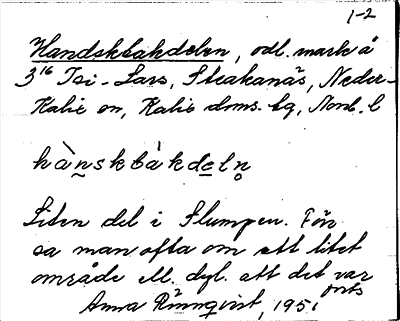 1-2
Handskbakdelen, odl. mark å
3¹⁶ Isi-Lars, Steakanäs, Neder-
Kalix sn, Kalix doms. sg, Norrb. l
hànskbàkdeln
Liten del i Slumpen. Förr
sa man ofta om ett litet
område ell. dyl. att det var
forts
Anna Rönnqvist, 1951